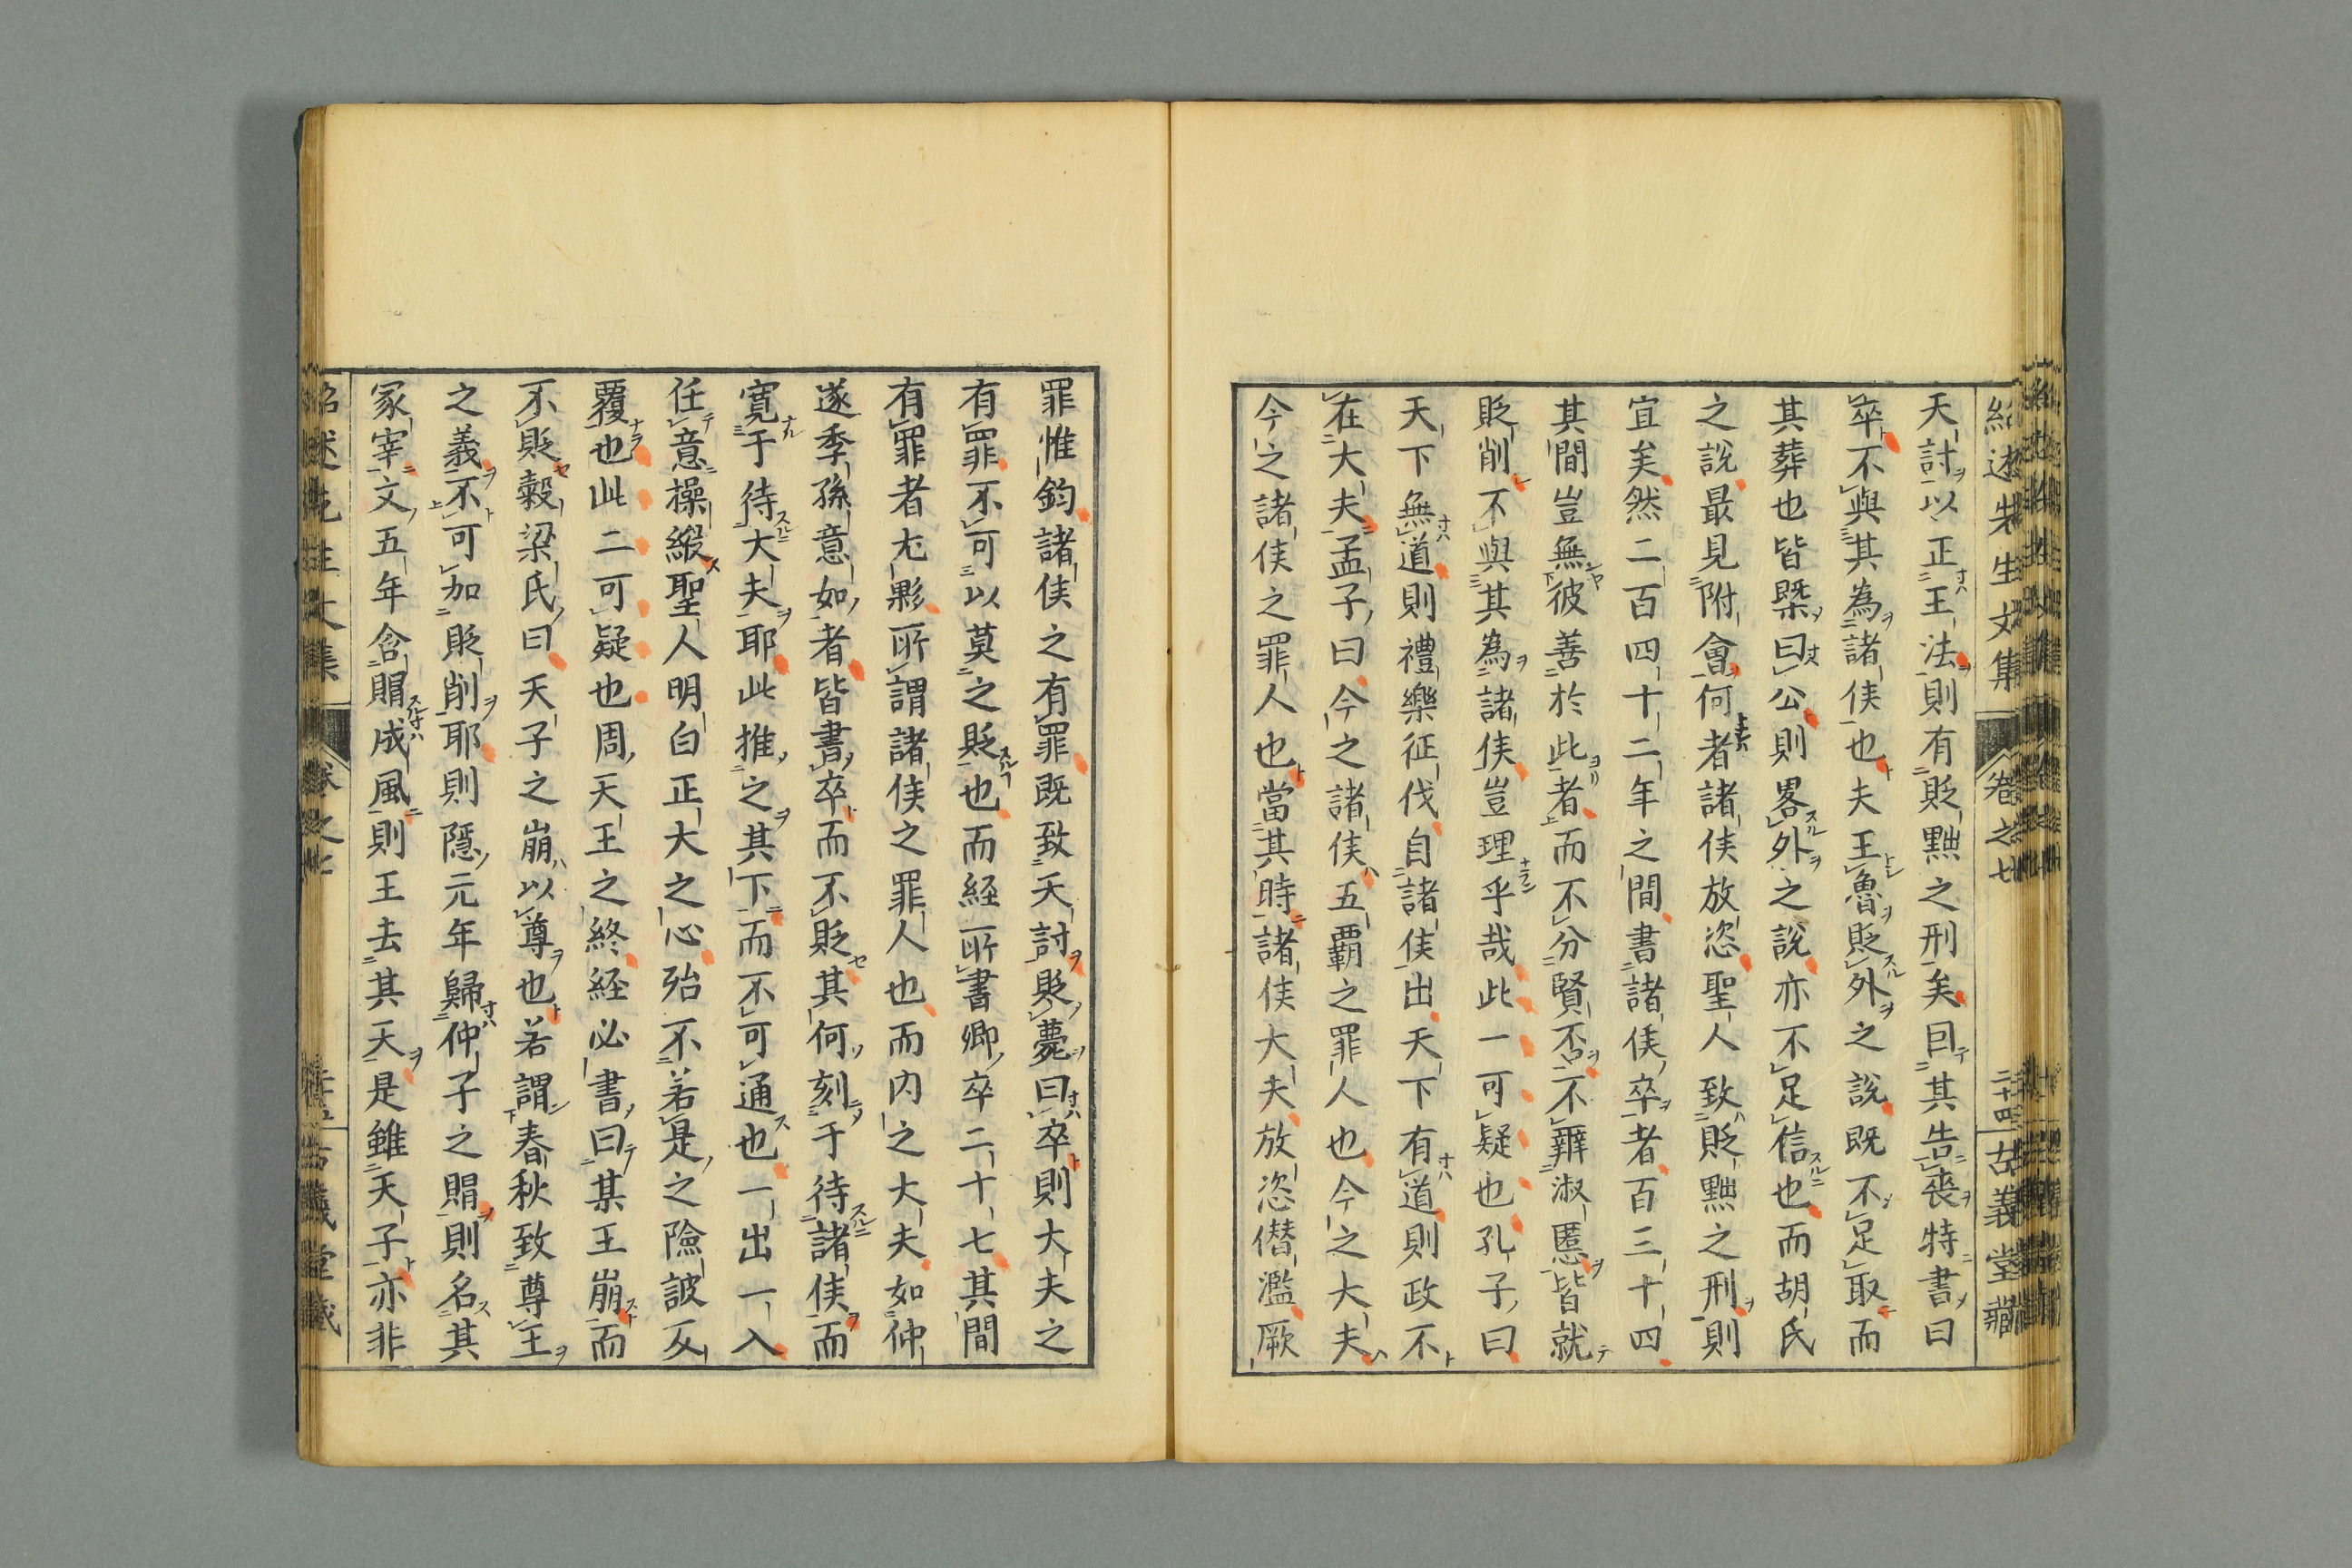 紹述先生文集 卷之七 二十四 古義堂藏
天討以正王法則有貶黜之刑矣囙其告喪特書曰
卒不與其為諸侯也夫王魯貶外之說既不足取而
其葬也皆槩曰公則畧外之說亦不足信也而胡氏
之說最見附會何者諸侯放恣聖人致貶黜之刑則
宜矣然二百四十二年之間書諸侯卒者百三十四
其間豈無彼善於此者而不分賢否不辨淑慝皆就
貶削不與其為諸侯豈理乎哉此一可疑也孔子曰
天下無道則禮樂征伐自諸侯出天下有道則政不
在大夫孟子曰今之諸侯五覇之罪人也今之大夫
今之諸侯之罪人也當其時諸侯大夫放恣僣濫厥
罪惟鈞諸侯之有罪既致天討貶薨曰卒則大夫之
有罪不可以莫之貶也而経所書卿卒二十七其間
有罪者尤夥所謂諸侯之罪人也而内之大夫如仲
遂季孫意如者皆書卒而不貶其何刻于待諸侯而
寛于待大夫耶此推之其下而不可通也一出一入
任意操縀聖人明白正大之心殆不若是之險詖仄
覆也此二可疑也周天王之終経必書曰某王崩而
不貶穀梁氏曰天子之崩以尊也若謂春秋致尊王
之義不可加貶削耶則隱元年歸仲子之賵則名其
冢宰文五年含賵成風則王去其天是雖天子亦非